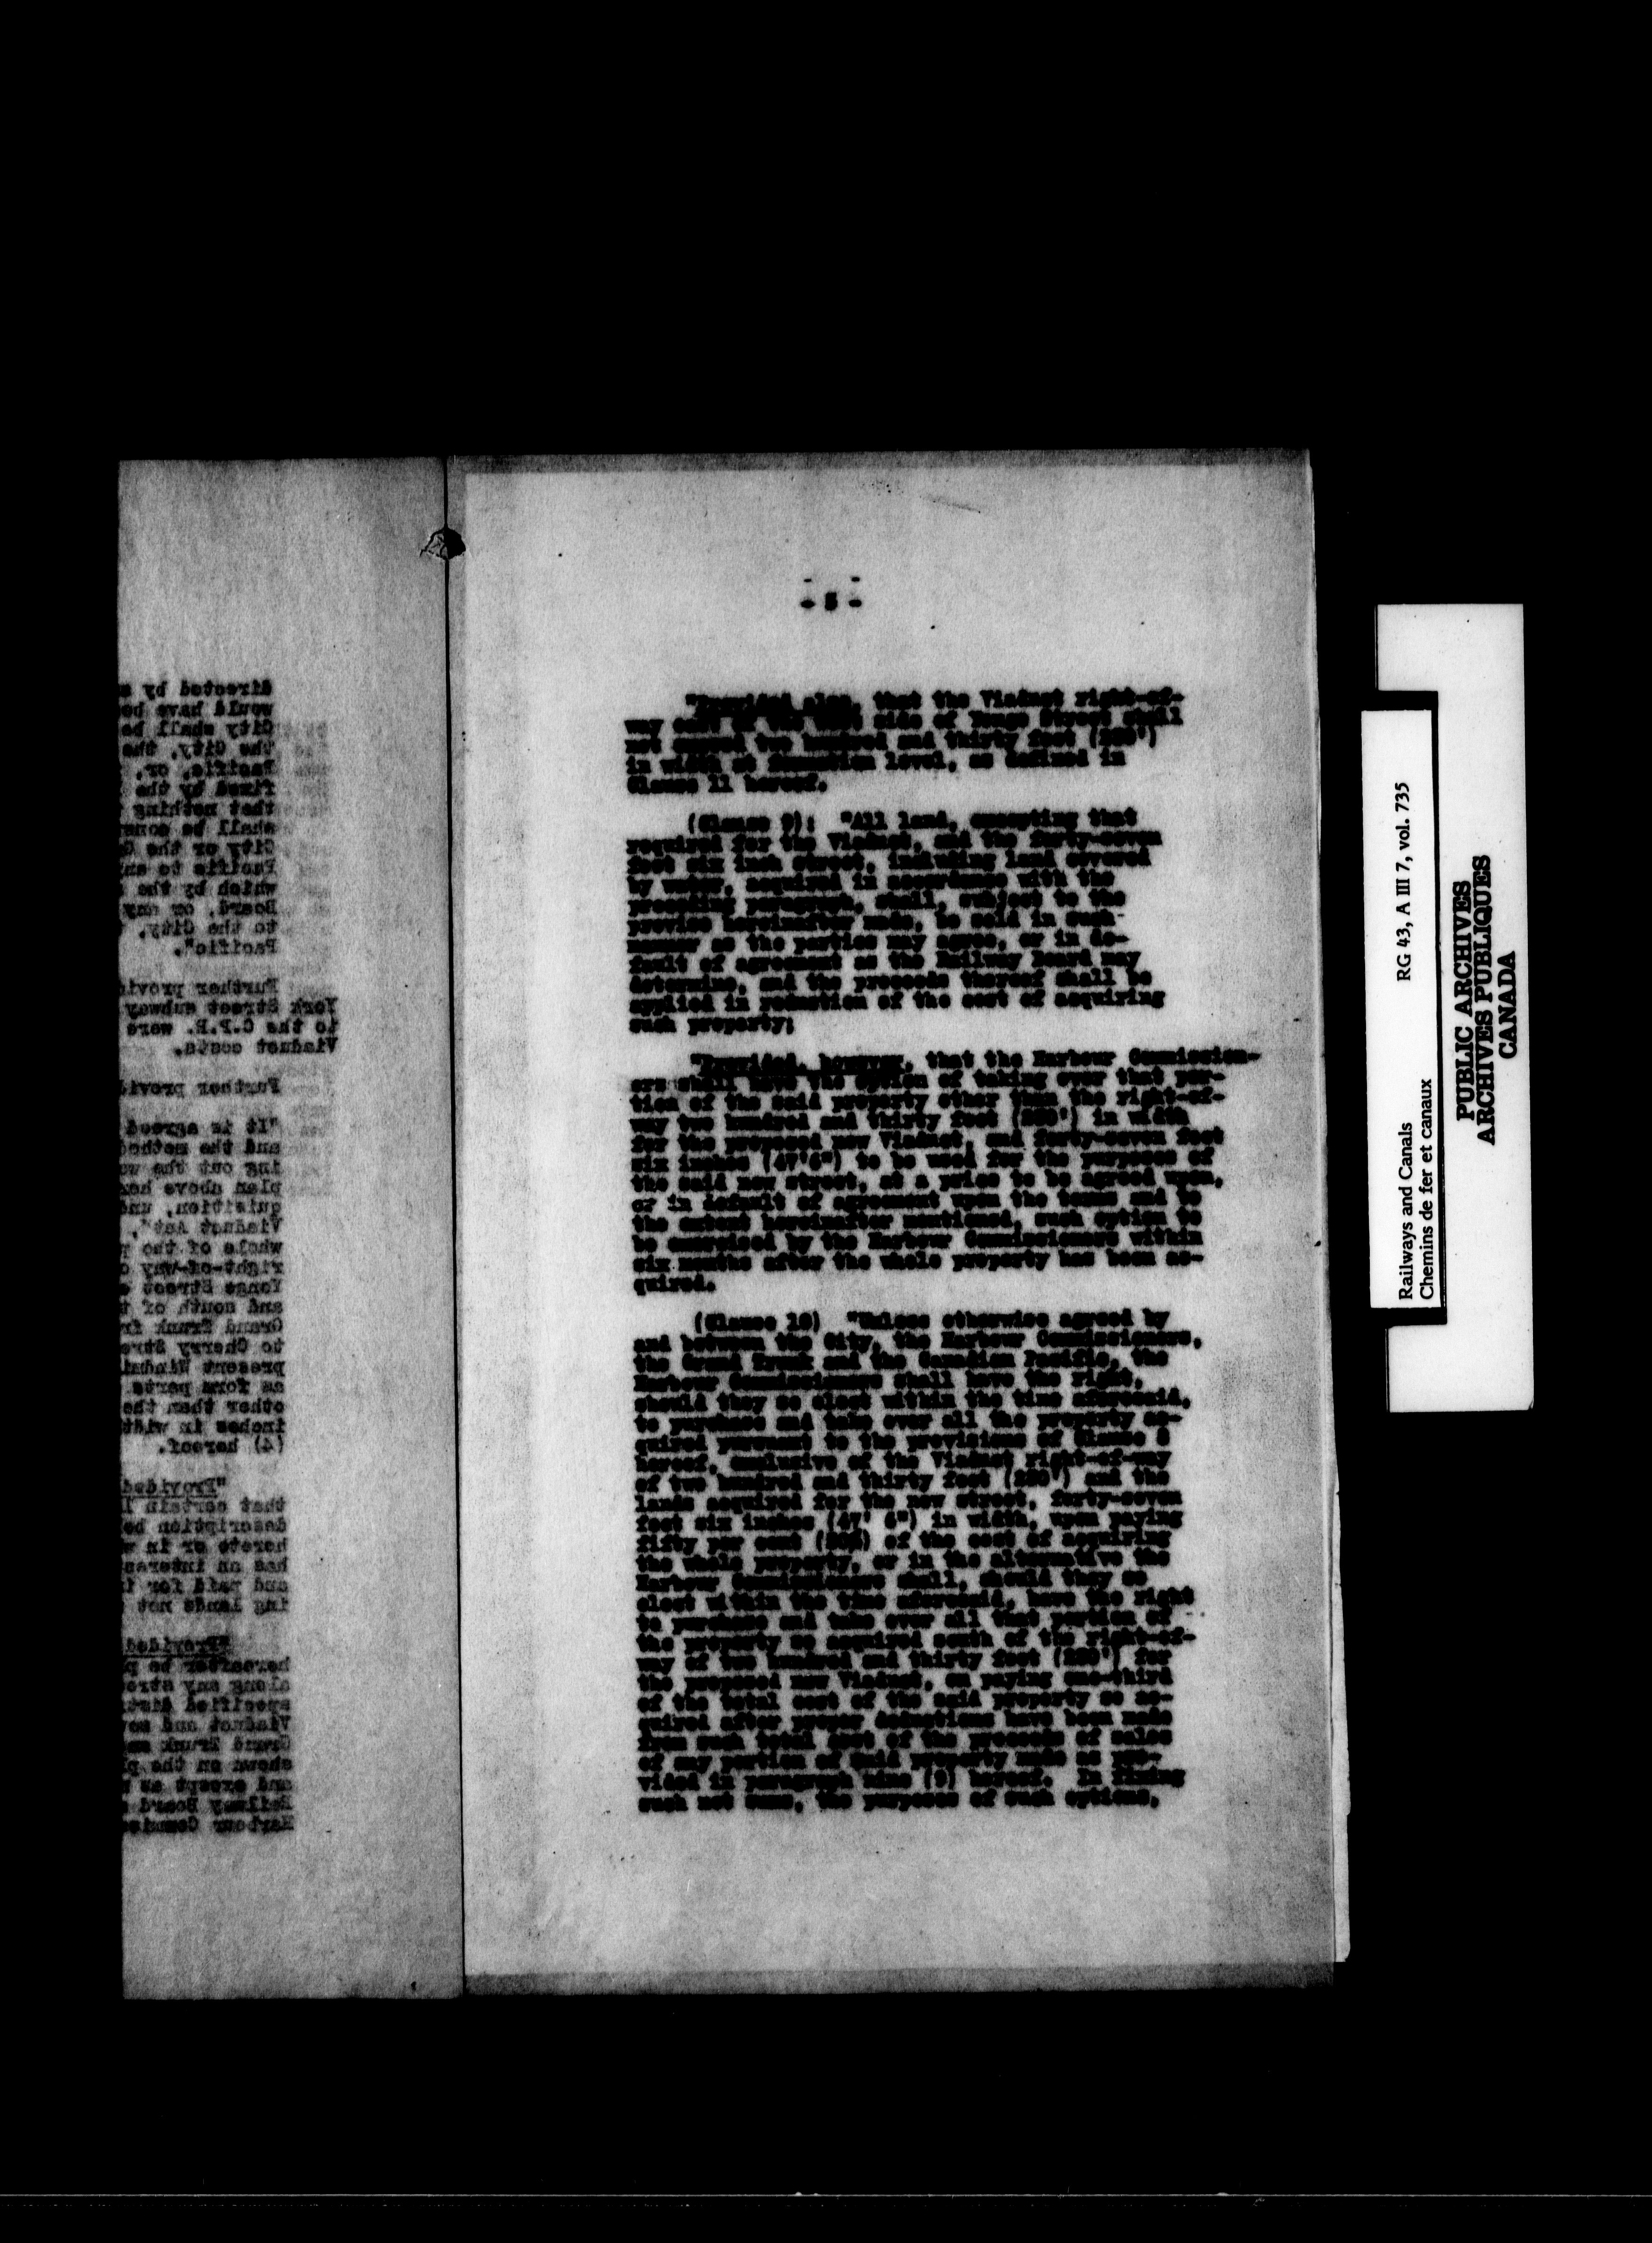 - 5 -
"Provided also, that the Viaduct right-of-
way east of the west side of Yonge Street shall
not exceed two hundred and thirty feet (230')
in width at foundation level, as defined in
Clause 11 hereof.
(Clause 9): "All land, excepting that
required for the Viaduct, and the forty-seven
feet six inch street, including land covered
by water, acquired in accordance with the
preceding paragraph, shall, subject to the
provise hereinafter made, be sold in such
manner as the parties may agree, or in de-
fault of agreement as the Railway Board may
determine, and the proceeds thereof shall be
applied in reduction of the cost of acquiring
such property;
"Provided, however, that the Harbour Commission-
ers shall have the option of taking over that por-
tion of the said property other than the right-of-
way two hundred and thirty feet (230') in width
for the proposed new Viaduct, and forty-seven feet
six inches (47'6") to be used for the purposes of
the said new street, at a price to be agreed upon,
or in default of agreement upon the terms and to
the extent hereinafter mentioned, such option to
be exercised by the Harbour Commissioners within
six months after the whole property has been ac-
quired.
(Clause 10) "Unless otherwise agreed by
and between the City, the Harbour Commissioners,
the Grand Trunk and the Canadian Pacific, the
Harbour Commissioners shall have the right,
should they so elect within the time aforesaid,
to purchase and take over all the property ac-
quired pursuant to the provisions of Clause
hereof, exclusive of the Viaduct right-of-way
of two hundred and thirty feet (230') and the
lands acquired for the new street, forty-seven
feet six inches (47' 6") in width, upon paying
fifty per cent (50%) of the cost of acquiring
the whole property, or in the alternative the
Harbour Commissioners shall, should they so
elect within the time aforesaid, have the right
to purchase and take over all that portion of
the property so acquired south of the right-of-
way of two hundred and thirty feet (230') for
the proposed new Viaduct, on paying one-third
of the total cost of the said property so ac-
quired after proper deductions have been made
from such total cost of the proceeds of sales
of any portion of said property made as pro-
vided in paragraph nine (9) hereof. In fixing
such net sums, the purposes of such options,
directed by
would have be
City shall be
the City, the
Pacific, or,
fixed by the
that nothing
shall be cons
City or the G
Pacific to an
which by the
Board, or any
to the City,
Pacific".
Further provi
York Street subway
to the C.P.R. were
Viaduct costs.
Further provi
"It is agreed
and the method
ing out the w
plan above he
quisition, und
Viaduct Act",
whole of the
right-of-way
Yonge Street
and south of t
Grand Trunk fr
to Cherry Stre
present Windmi
as form parts
other than the
inches in widt
(4) hereof.
"Provided
that certain l
description be
hereto or in
has an interes
and paid for
ing lands not
"Provided
hereafter be p
along any stre
specified dist
Viaduct and no
Grand Trunk
shown on the pl
and except as
Railway Board
Harbour Commis
Railways and Canals RG 43, A III 7, vol. 735
Chemins de fer et canaux
PUBLIC ARCHIVES
ARCHIVES PUBLIQUES
CANADA